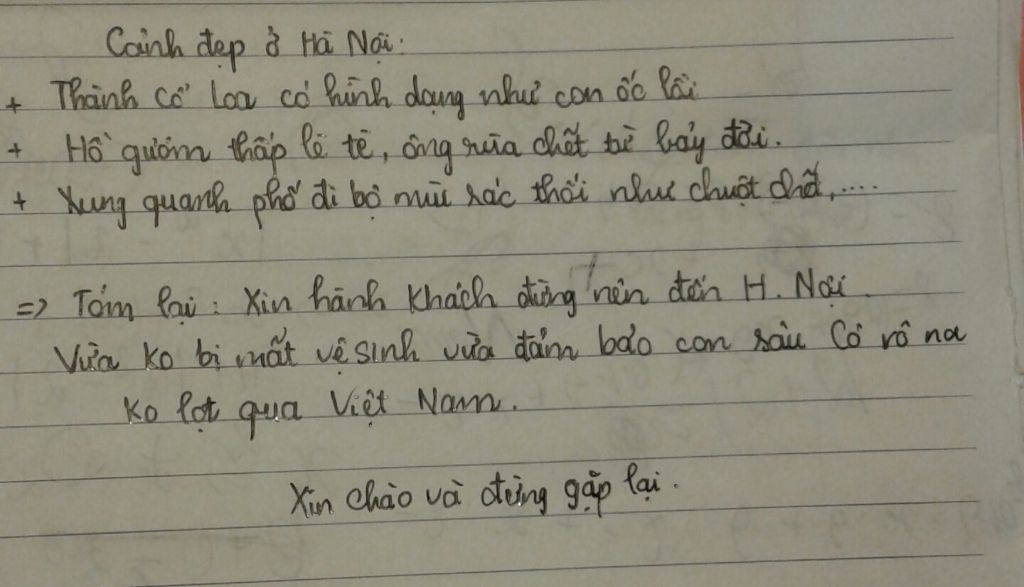 Cảnh đẹp ở Hà Nội:
+ Thành Cổ Loa có hình dạng như con ốc lồi
+ Hồ gươm thấp lè tè, ông rùa chết từ bảy đời.
+ Xung quanh phố đi bộ mùi rác thối như chuột chết,....
=> Tóm lại: Xin hành khách đừng nên đến H. Nội.
Vừa ko bị mất vệ sinh vừa đảm bảo con sâu Cô rô na
ko lọt qua Việt Nam.
Xin chào và đừng gặp lại.